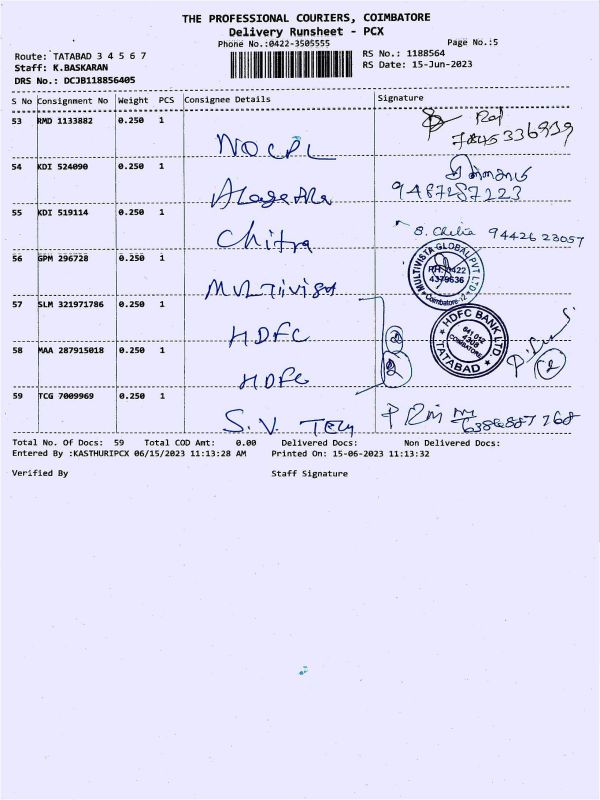 THE PROFESSIONAL COURIERS, COIMBATORE
Delivery Runsheet - PCX
Phone No.:0422-3505555 Page No.:5
Route: TATABAD 3 4 5 6 7 RS No.: 1188564
Staff: K.BASKARAN RS Date: 15-Jun-2023
DRS No.: DCJB118856405
S No Consignment No Weight PCS Consignee Details Signature
53 RMD 1133882 0.250 1
NOCPL
54 KDI 524090 0.250 1
9487287223
55 KDI 519114 0.250 1
Chitra 94426 23057
56 GPM 296728 0.250 1
MULTIVISTA GLOBAL PVT LTD
PH: 0422
4379636
Coimbatore-12
57 SLM 321971786 0.250 1
HDFC
HDFC BANK LTD.
641 012
COIMBATORE
TATABAD
58 MAA 287915018 0.250 1
HDFC
59 TCG 7009969 0.250 1
S.V.
Total No. Of Docs: 59 Total COD Amt: 0.00 Delivered Docs: Non Delivered Docs:
Entered By :KASTHURIPCX 06/15/2023 11:13:28 AM Printed On: 15-06-2023 11:13:32
Verified By Staff Signature